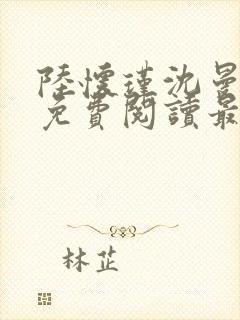 陸懷瑾沈曼
免費閱讀最
林芷